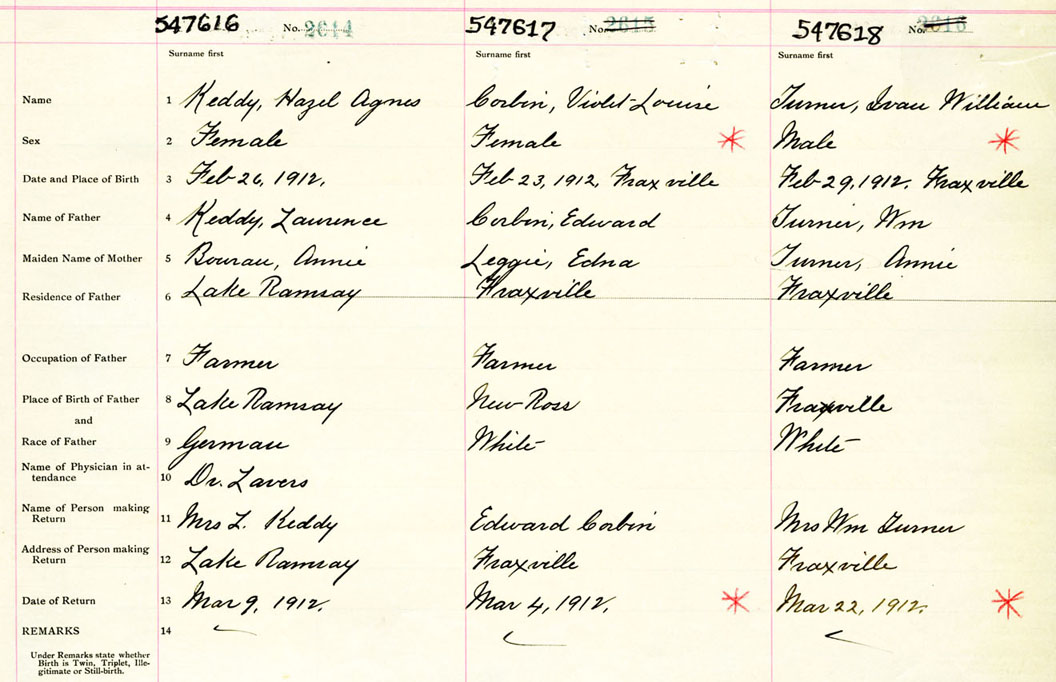 547616 No. 2614 547617 No. 2615 547618 No. 2616
Surname first Surname first Surname first
Name 1 Keddy, Hazel Agnes Corbin, Violet Louise Turner, Ivan William
Sex 2 Female Female Male
Date and Place of Birth 3 Feb 26, 1912. Feb 23, 1912, Fraxville Feb 29, 1912. Fraxville
Name of Father 4 Keddy, Laurence Corbin, Edward Turner, Wm
Maiden Name of Mother 5 Bourau, Annie Leggie, Edna Turner, Annie
Residence of Father 6 Lake Ramsay Fraxville Fraxville
Occupation of Father 7 Farmer Farmer Farmer
Place of Birth of Father 8 Lake Ramsay New Ross Fraxville
and
Race of Father 9 German White White
Name of Physician in at-
tendance 10 Dr. Lavers
Name of Person making
Return 11 Mrs L. Keddy Edward Corbin Mrs Wm Turner
Address of Person making
Return 12 Lake Ramsay Fraxville Fraxville
Date of Return 13 Mar 9, 1912. Mar 4, 1912. Mar 22, 1912.
REMARKS 14
Under Remarks state whether
Birth is Twin, Triplet, Ille-
gitimate or Still-birth.